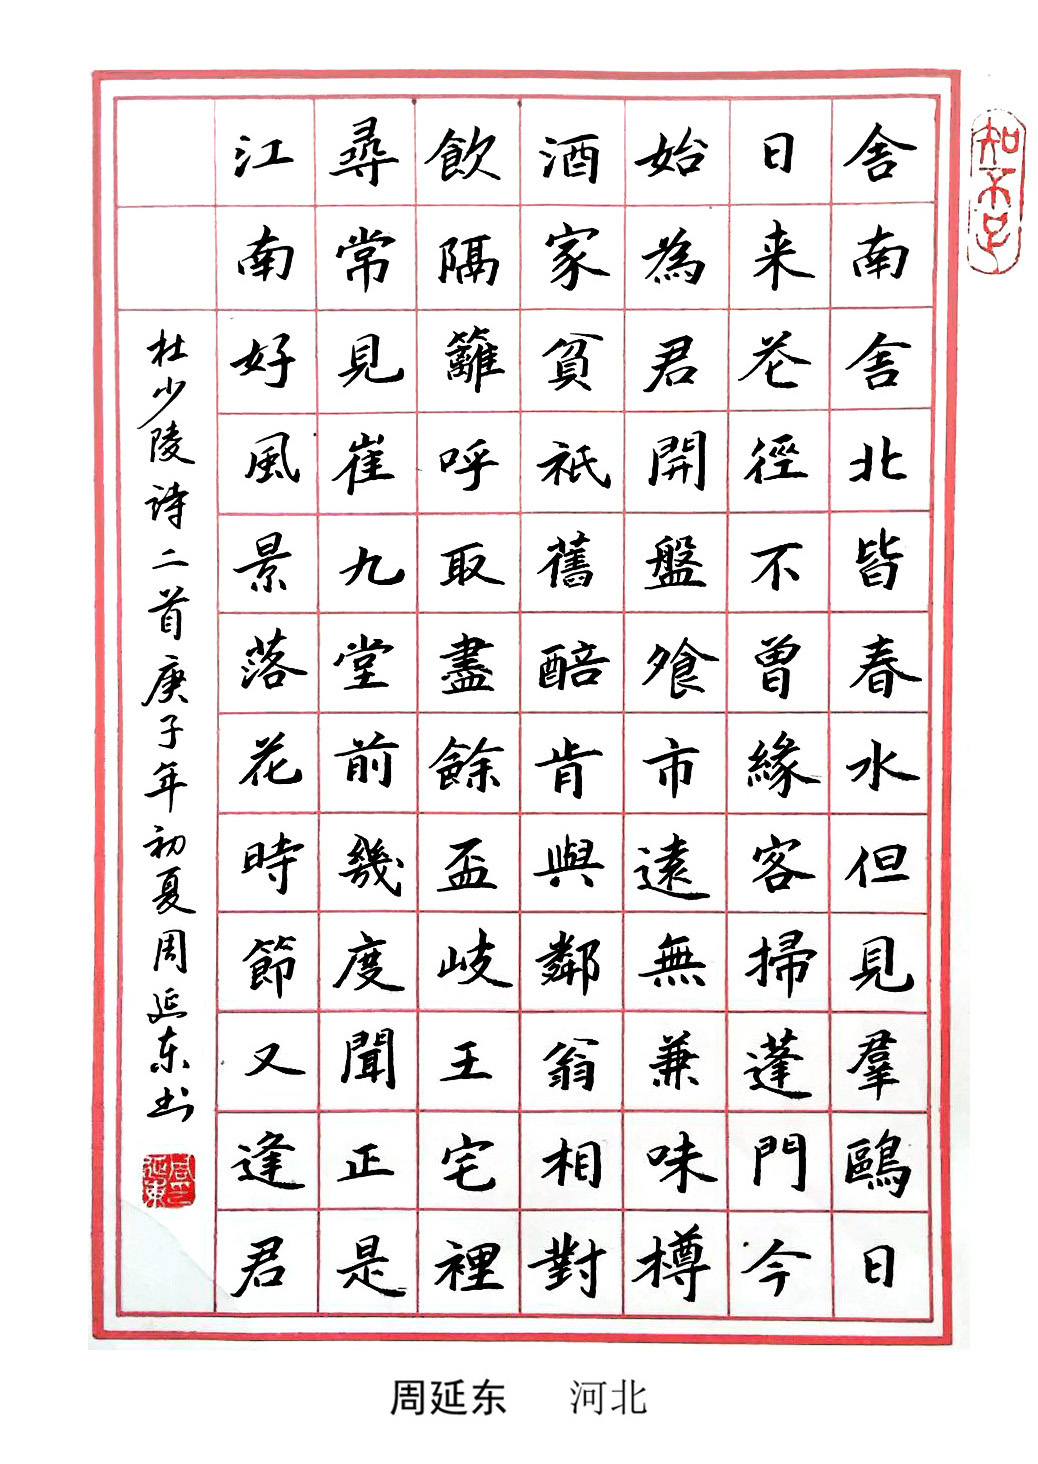 知不足
舍南舍北皆春水但見羣鷗日
日来花徑不曾緣客掃蓬門今
始為君開盤飱市遠無兼味樽
酒家貧祇舊醅肯與鄰翁相對
飲隔籬呼取盡餘盃岐王宅裡
尋常見崔九堂前幾度聞正是
江南好風景落花時節又逢君
杜少陵诗二首庚子年初夏周延东书
周延東
周延东 河北